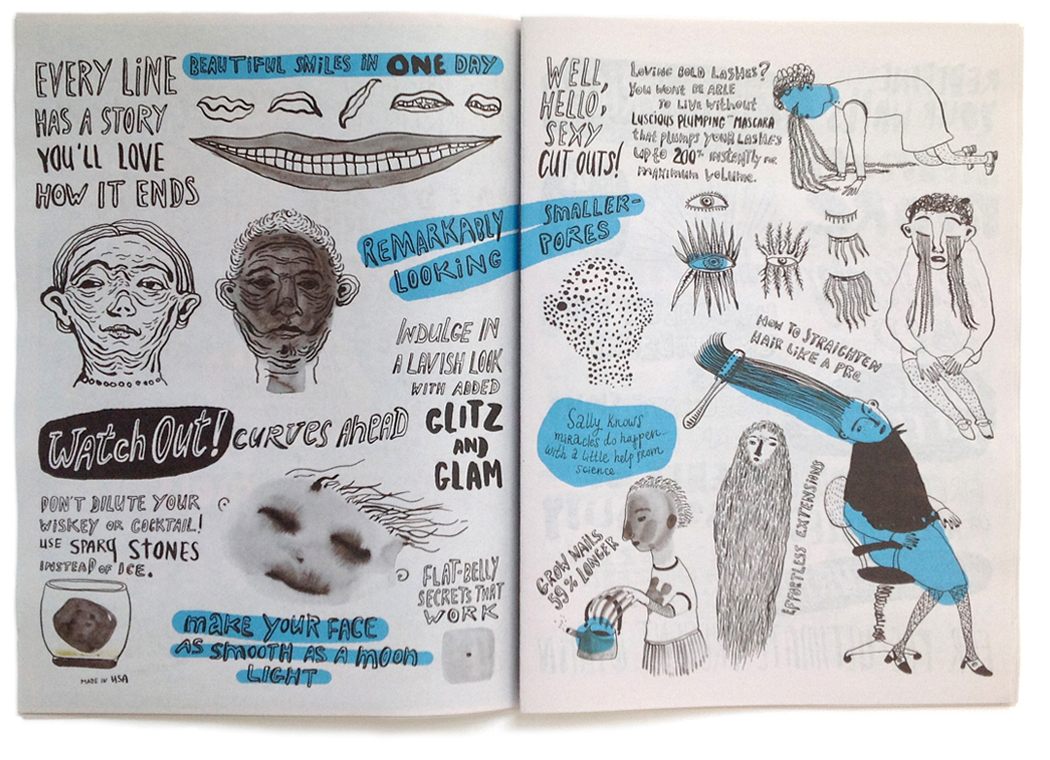 EVERY LINE
HAS A STORY
YOU'LL LOVE
HOW IT ENDS
BEAUTIFUL SMILES IN ONE DAY
REMARKABLY SMALLER-
LOOKING PORES
INDULGE IN
A LAVISH LOOK
WITH ADDED
GLITZ
AND
GLAM
Watch Out! CURVES AHEAD
DON'T DILUTE YOUR
WISKEY OR COCKTAIL!
USE SPARQ STONES
INSTEAD OF ICE.
MADE IN USA
FLAT-BELLY
SECRETS THAT
WORK
MAKE YOUR FACE
AS SMOOTH AS A MOON
LIGHT
WELL,
HELLO,
SEXY
CUT OUTS!
LOVING BOLD LASHES?
YOU WONT BE ABLE
TO LIVE WITHOUT
LUSCIOUS PLUMPING™ MASCARA
THAT PLUMPS YOUR LASHES
UP TO 200% INSTANTLY FOR
MAXIMUM VOLUME.
HOW TO STRAIGHTEN
HAIR LIKE A PRO
Sally knows
miracles do happen
with a little help from
science.
GROW NAILS
59% LONGER
EFFORTLESS EXTENSIONS